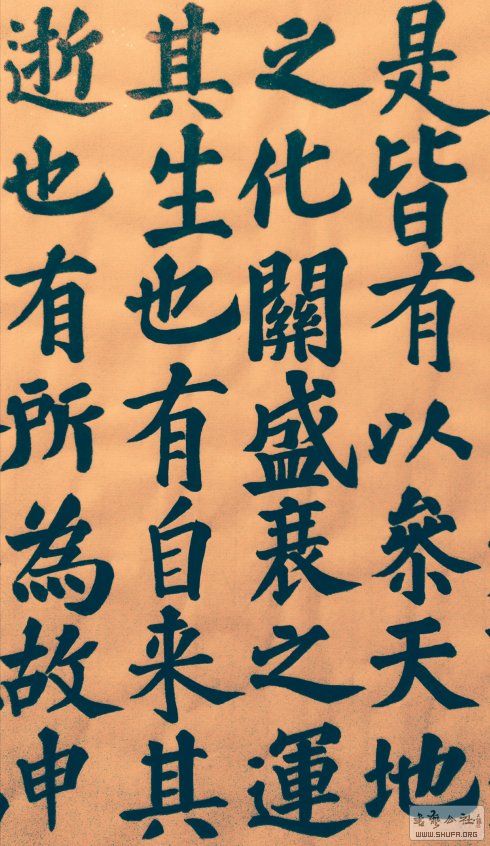 是皆有以參天地
之化關盛衰之運
其生也有自来其
逝也有所為故申
WWW.SHUFA.ORG